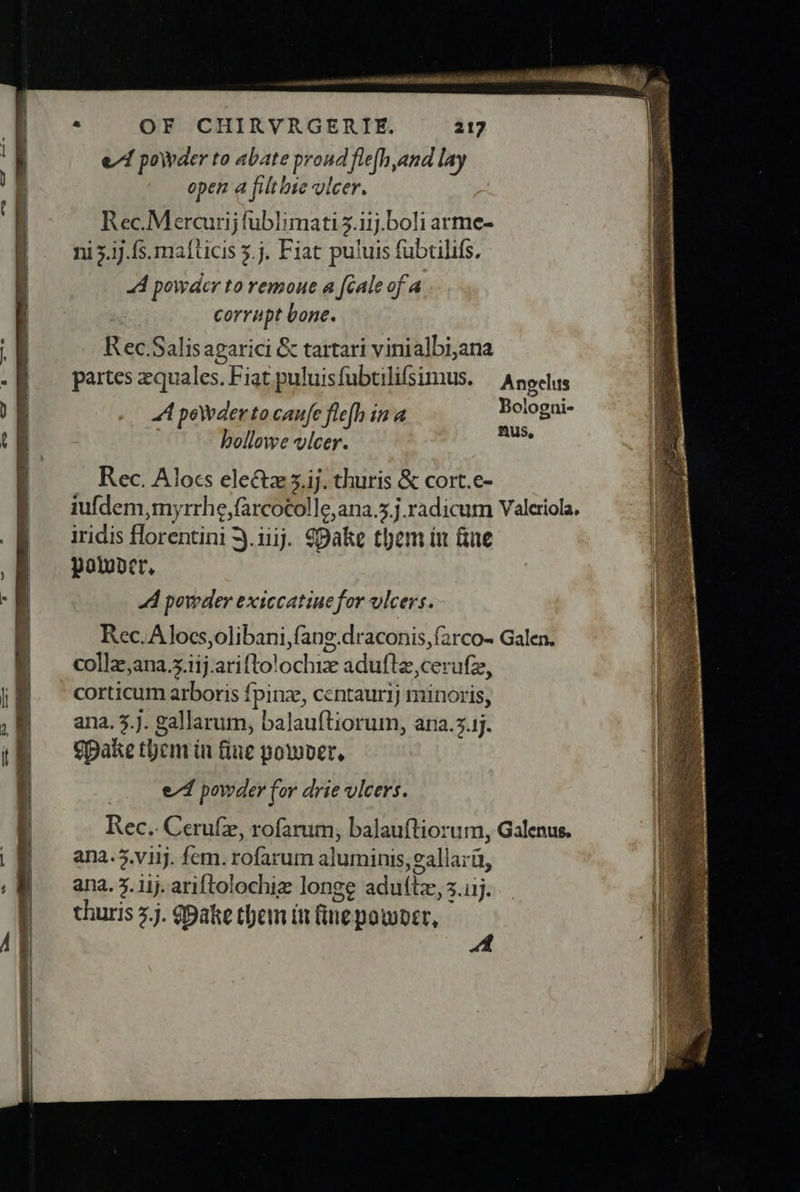 OF CHIRVRGERIE. 217
A powder to abate proud fleſh, and lay
open a filthie vlcer.
Rec. Mercurij ſublimati ʒ.iij. boli arme-
ni ʒ.ij.ſs. maſticis ʒ.j. Fiat puluis ſubtiliſs.
A powder to remoue a ſcale of a
corrupt bone.
Rec. Salis agarici & tartari vini albi, ana
partes æquales. Fiat puluis ſubtiliſsimus. Angelus
A powder to cauſe fleſh in a Bologni-
hollowe vlcer. nus,
Rec. Aloes electæ ʒ.ij. thuris & cort. e-
iuſdem, myrrhe, ſarcocolle, ana. ʒ.j. radicum Valeriola.
iridis florentini ℈.iiij. Make them in fine
powder,
A powder exiccatiue for vlcers.
Rec. Aloes, olibani, ſang. draconis, ſarco- Galen.
collæ, ana. ʒ.iij. ariſtolochiæ aduſtæ, ceruſæ,
corticum arboris ſpinæ, centaurij minoris,
ana. ʒ.j. gallarum, balauſtiorum, ana. ʒ.ij.
Make them in fine powder,
A powder for drie vlcers.
Rec. Ceruſæ, roſarum, balauſtiorum, Galenus.
ana. ʒ.viij. ſem. roſarum aluminis, gallarũ,
ana. ʒ.iij. ariſtolochiæ longe aduſtæ, ʒ.iij.
thuris ʒ.j. Make them in fine powder,
A